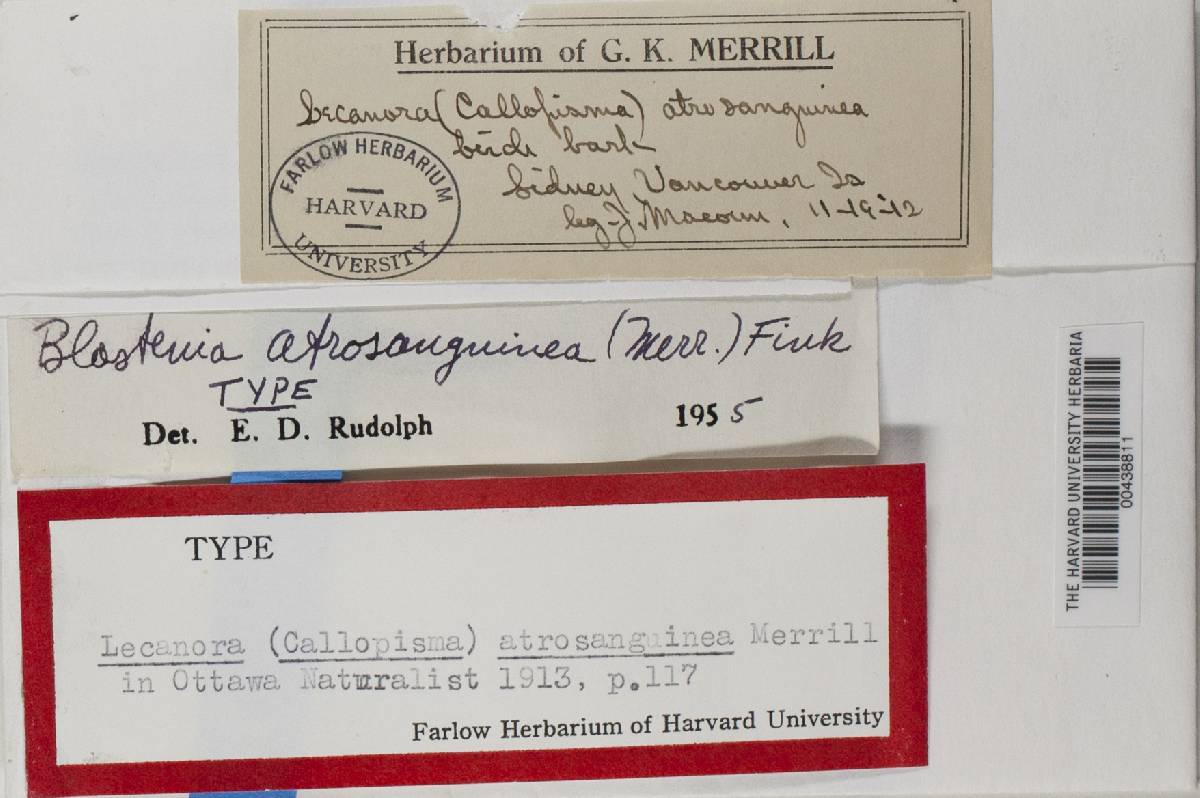 Herbarium of G. K. MERRILL
Lecanora (Callopisma) atrosanguinea
birch bark
Sidney, Vancouver Is
leg. J. Macoun, 11-19-12
FARLOW HERBARIUM
HARVARD
UNIVERSITY
Blastenia atrosanguinea (Merr.) Fink
TYPE
Det. E. D. Rudolph 1955
TYPE
Lecanora (Callopisma) atrosanguinea Merrill
in Ottawa Naturalist 1913, p.117
Farlow Herbarium of Harvard University
THE HARVARD UNIVERSITY HERBARIA
00438811